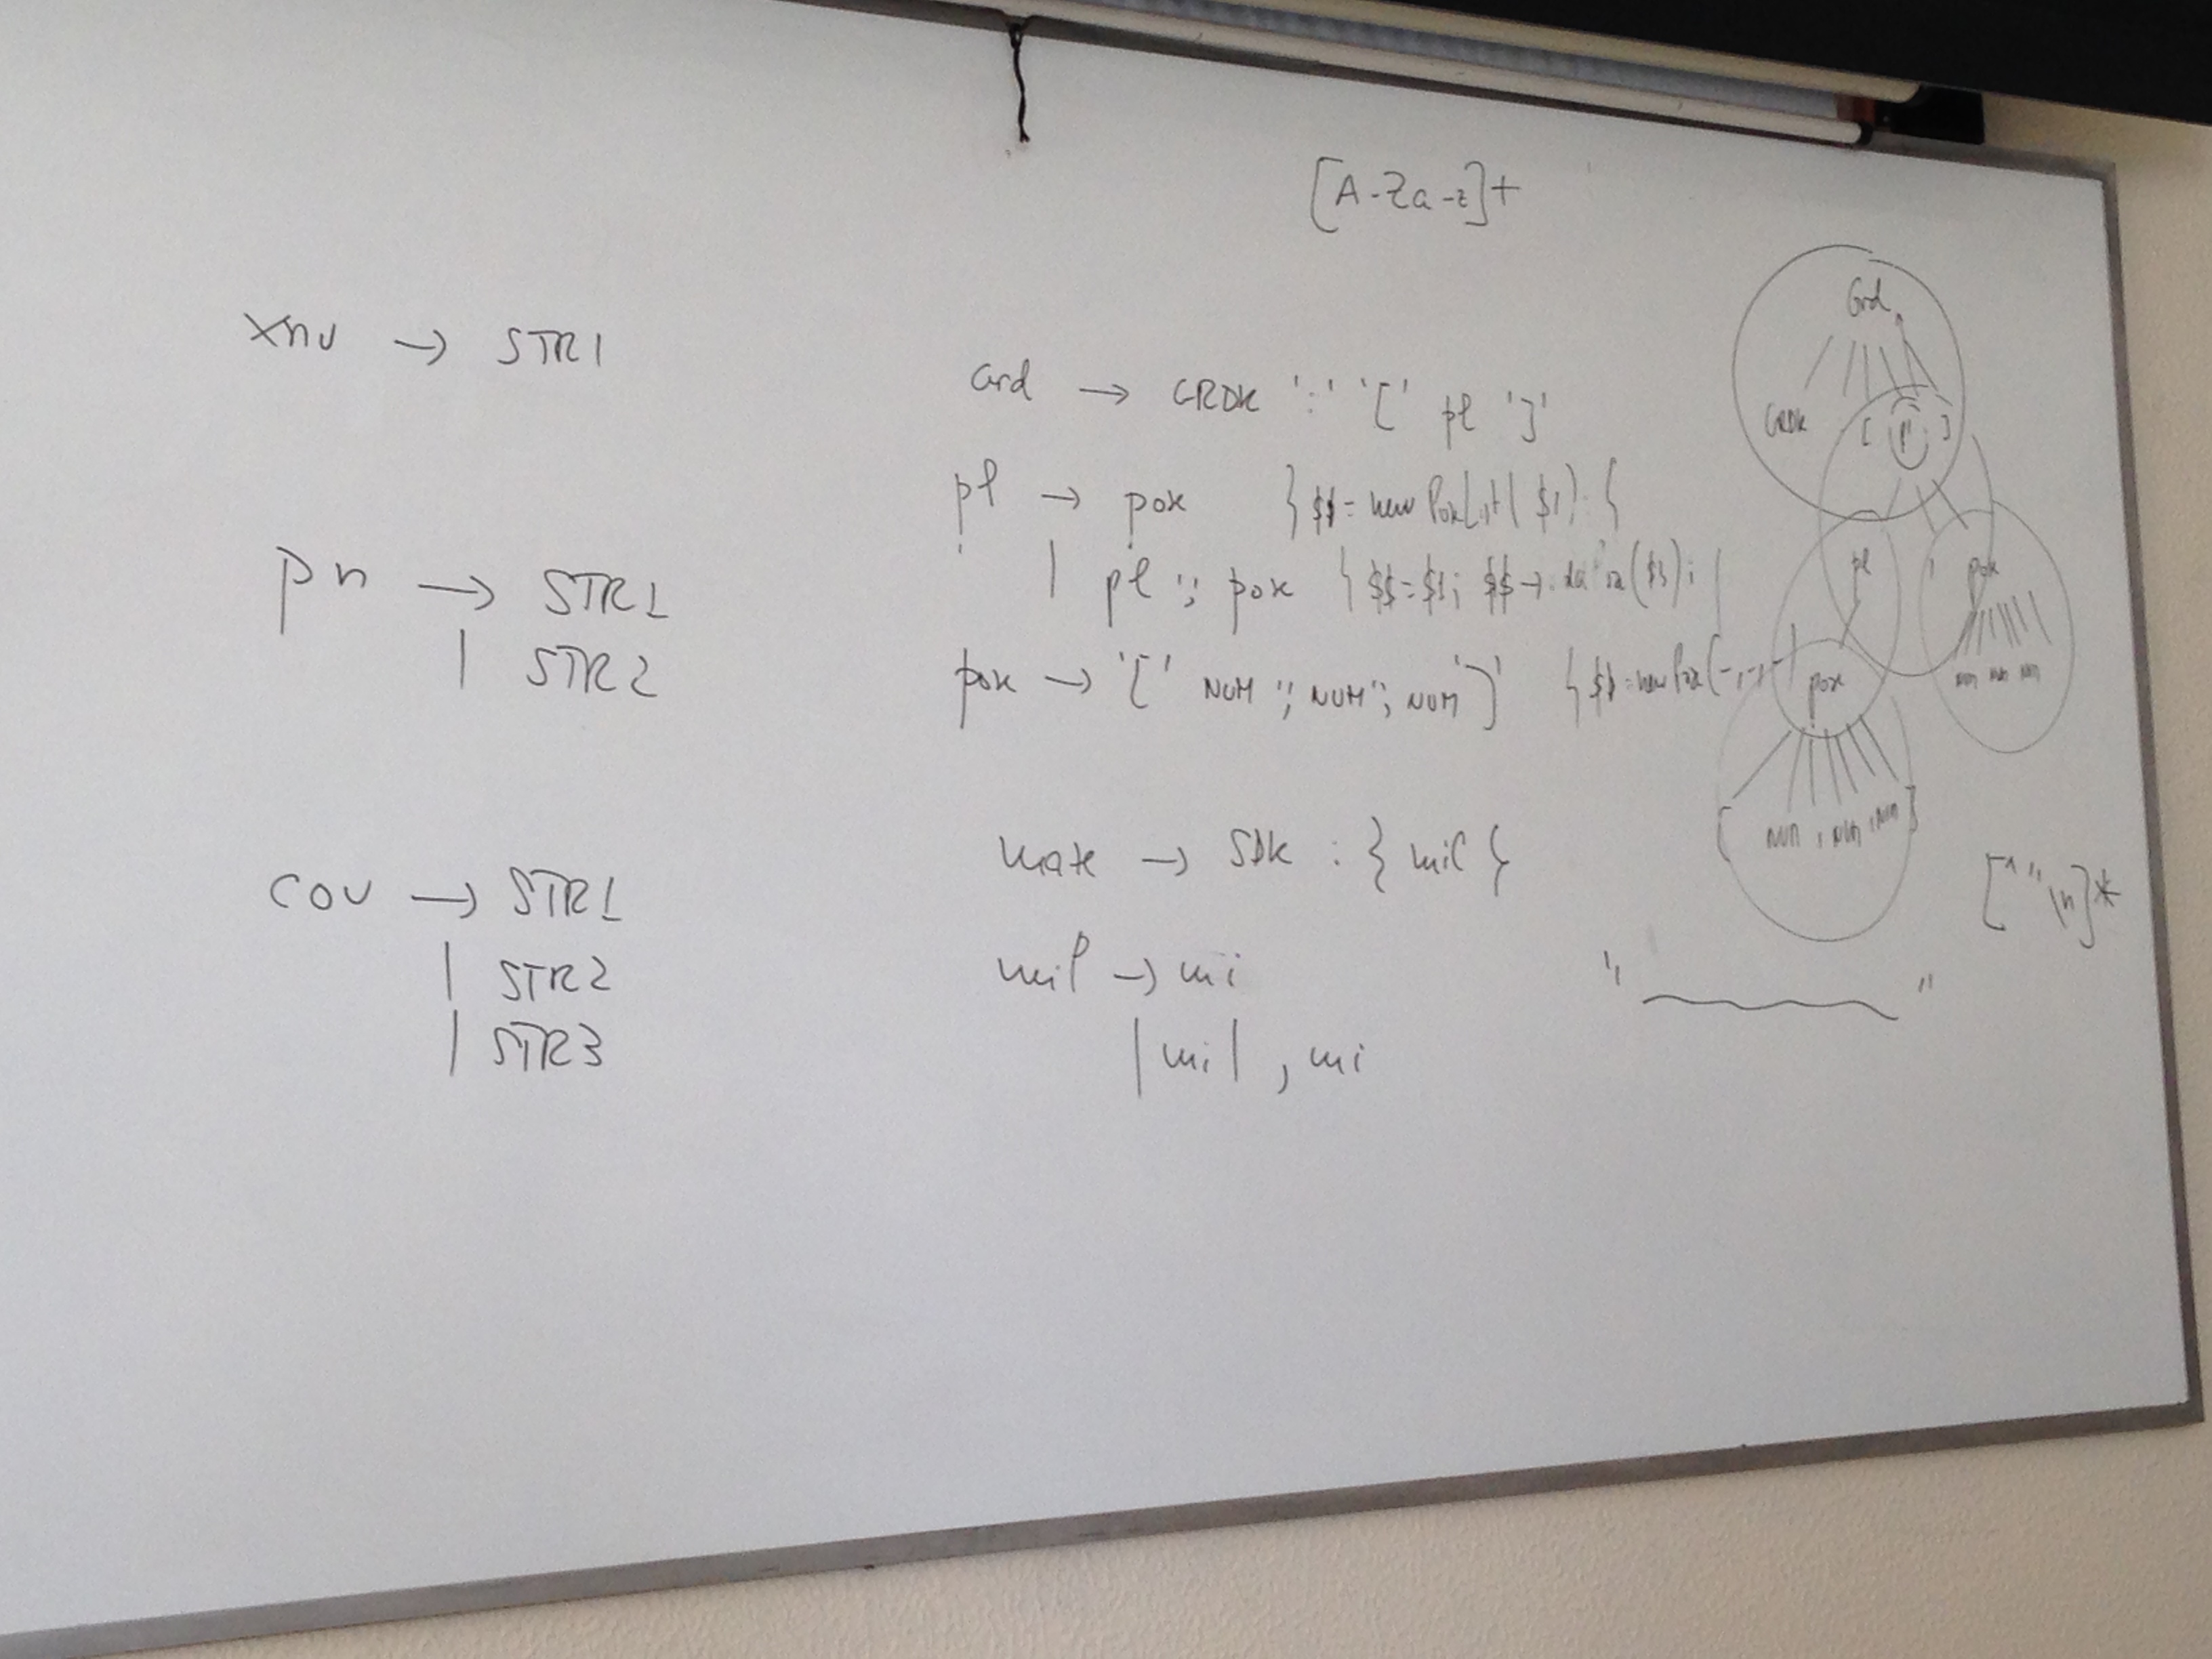 [A-Za-z]+
xnu → STR1
pn → STR1
| STR2
cou → STR1
| STR2
| STR3
Grd → GRDK ':' '[' pl ']'
pl → pox { $$ = new PoxList($1); }
| pl ',' pox { $$=$1; $$→ ($3); }
pox → '[' NUM ',' NUM ',' NUM ']' { $$ = new Pox(-,-,-) }
→ SDK : { mil }
mil → mi
| mil , mi
Grd
GRDK [ pl ]
pl , pox
NUM NUM NUM
pox
[ NUM , NUM , NUM ]
[^"\n]*
" "